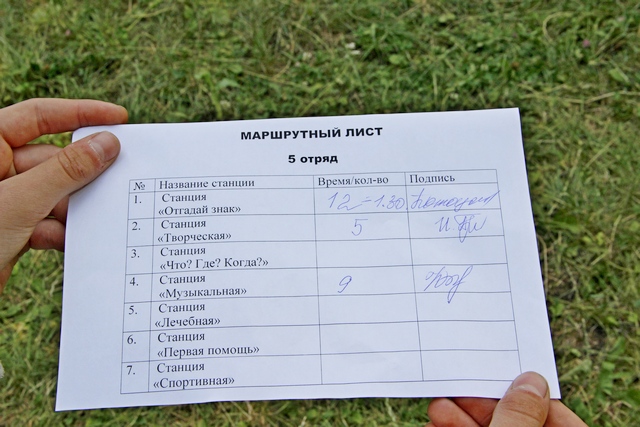 МАРШРУТНЫЙ ЛИСТ
5 отряд
№ Название станции Время/кол-во Подпись
1. Станция «Отгадай знак» 12 – 1.30
2. Станция «Творческая» 5
3. Станция «Что? Где? Когда?»
4. Станция «Музыкальная» 9
5. Станция «Лечебная»
6. Станция «Первая помощь»
7. Станция «Спортивная»